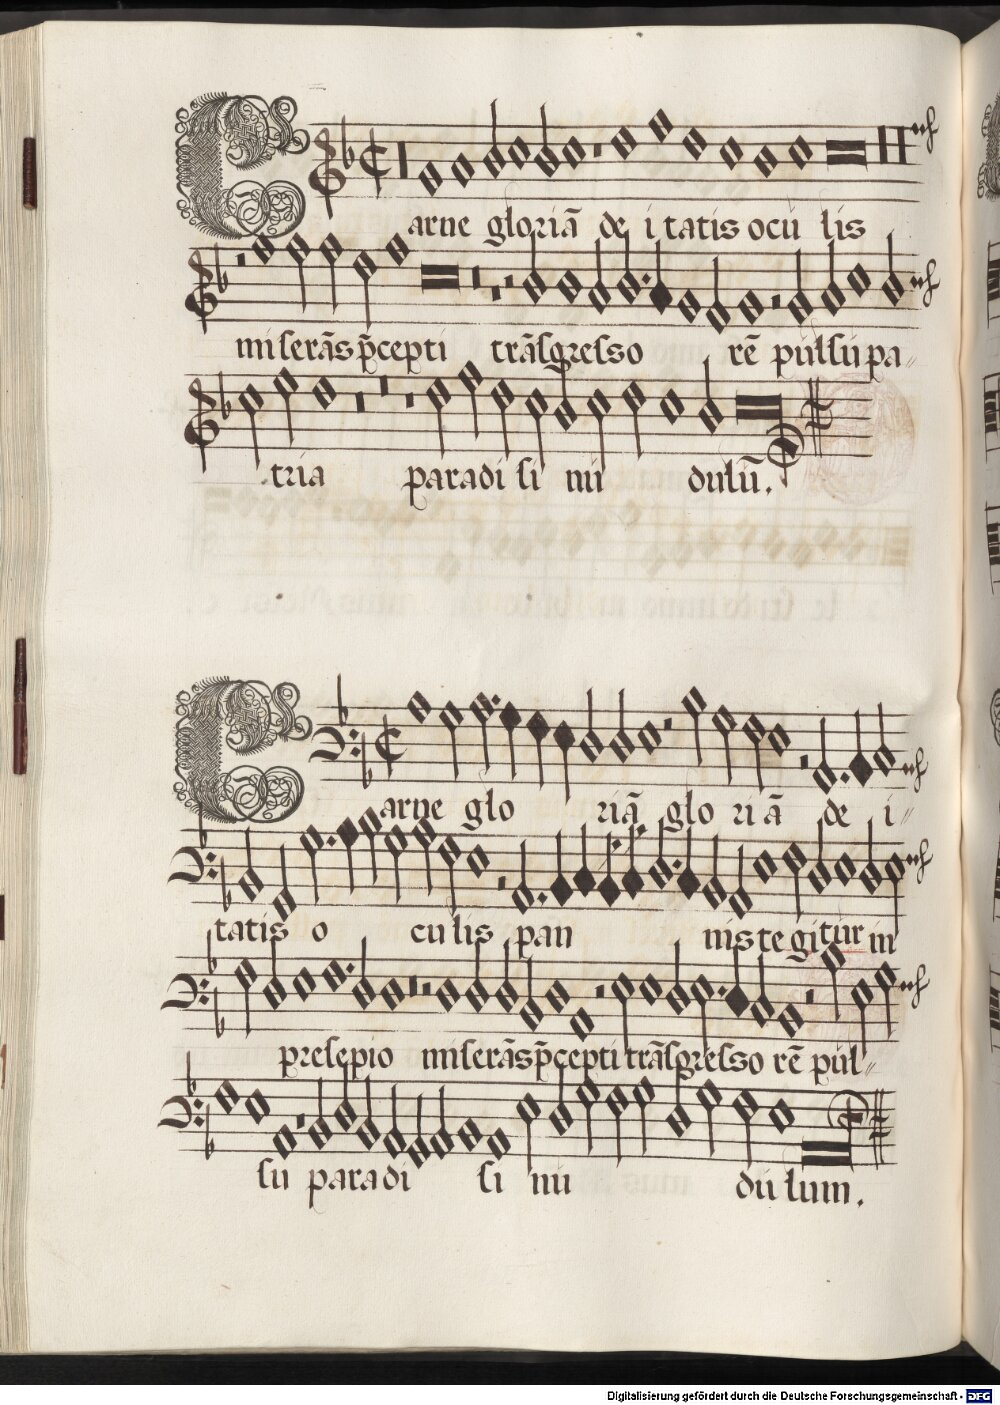 Carne gloriā de i tatis ocu lis
miserās p̄cepti trāsgresso rē pulsū pa„
tria paradi si nu dulū.
Carne glo riā glo ri ā de i„
tatis o cu lis pan nis tegitur in
presepio miserās p̄cepti trāsgresso rē pul„
su paradi si nu du lum.
Digitalisierung gefördert durch die Deutsche Forschungsgemeinschaft - DFG